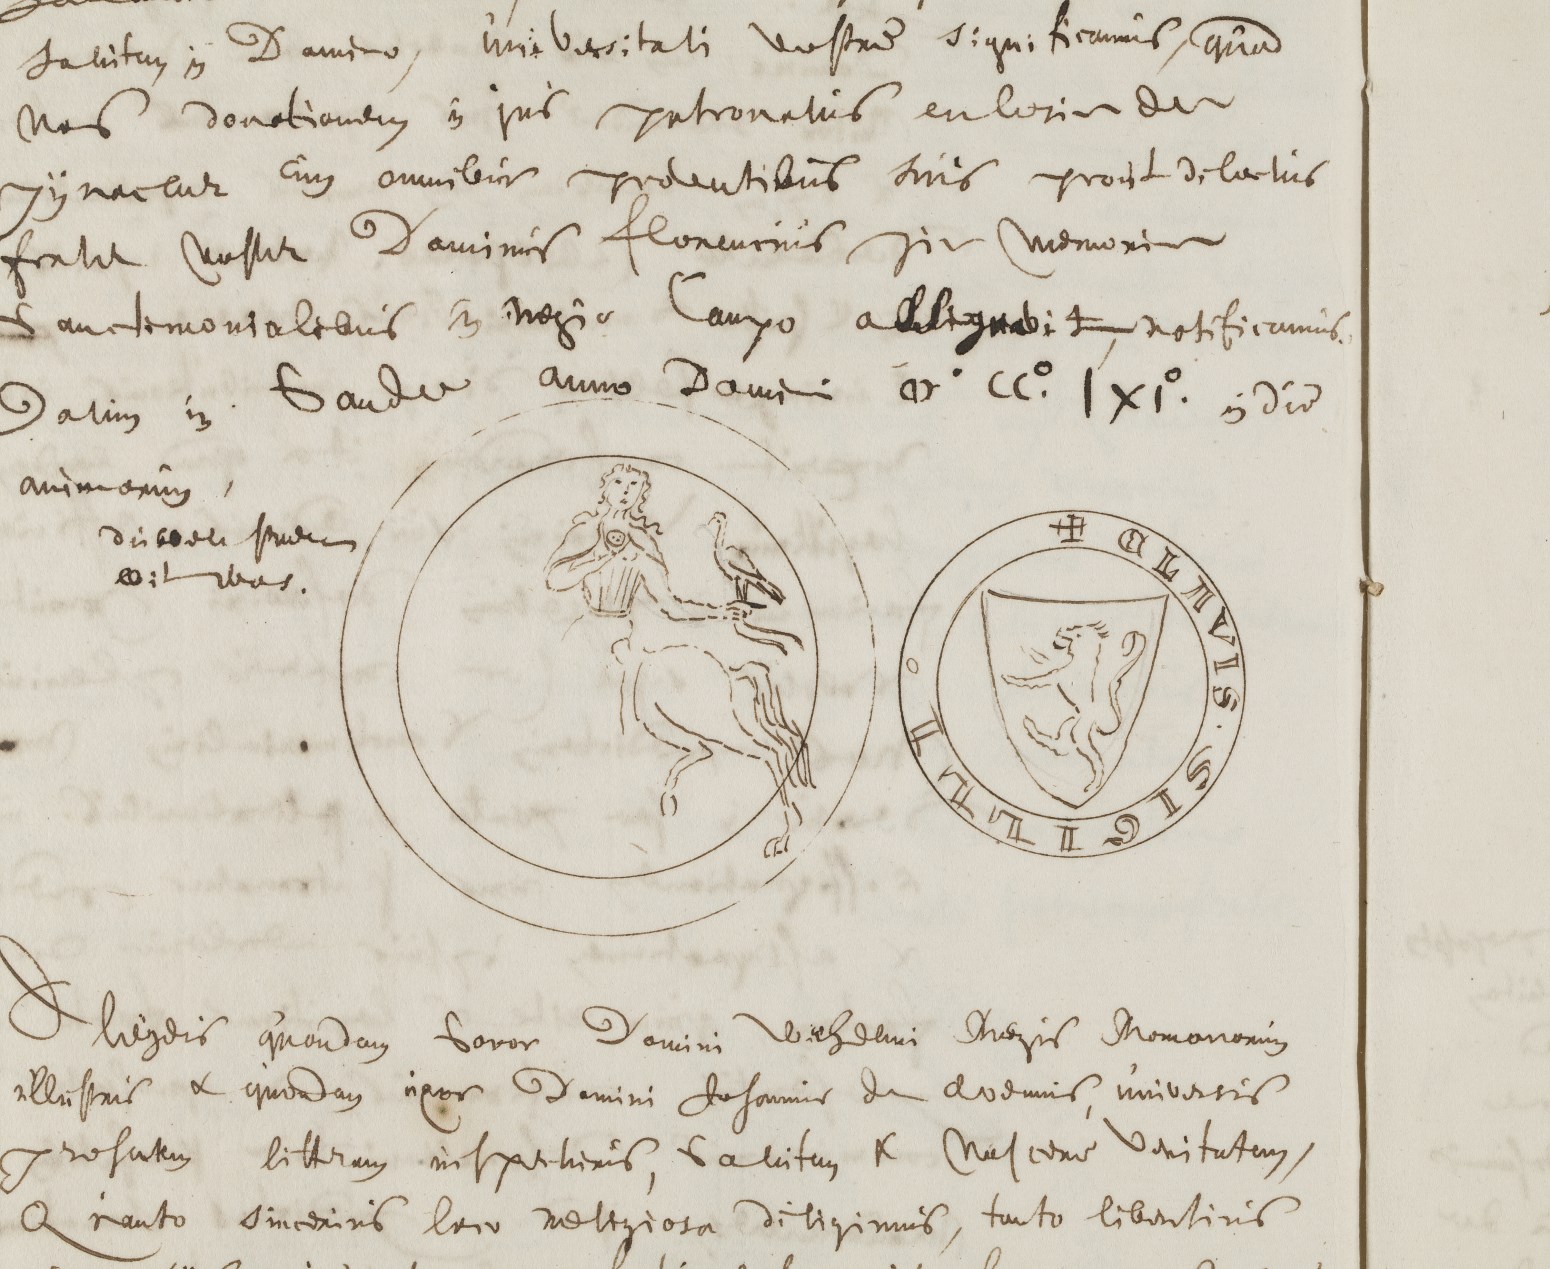 Salutem in Domino, universitati vestre significamus, quod
nos donationem in jus patronatus ecclesie de
pijnaclar cum omnibus pertinentibus suis prout dilectus
frater noster Dominus florencius pie memorie
Sanctimonialibus in regio Campo assignavit, ratificamus.
Datum in Gouda anno Domini M° CC°. LXI°. in die
animarum,
dubbeli
wit was.
✠ CLAVIS. SIGILLI °
Aleydis quondam soror Domini Wilhelmi Regis Romanorum
illustris & quondam uxor Domini Johannis de Avennis, universis
presentem litteram inspecturis, Salutem & Noscere veritatem,
Quanto sincerius loca religiosa diligimus, tanto libentius